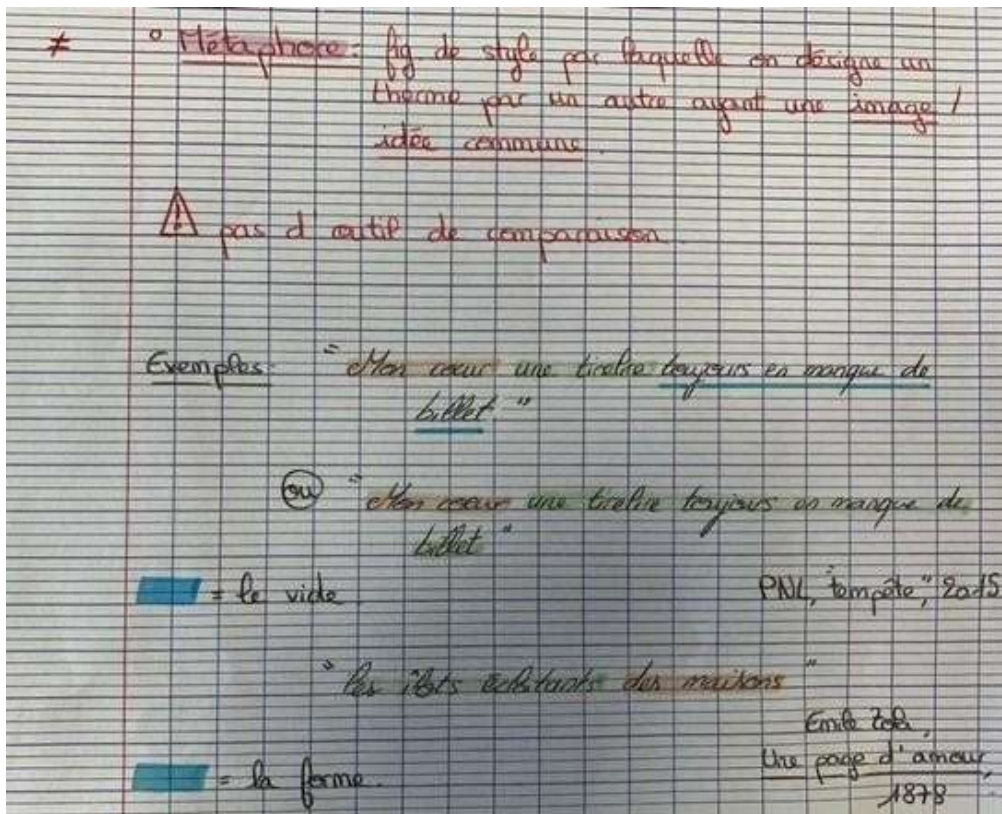 ≠ ° Métaphore : fig de style par laquelle on désigne un
therme par un autre ayant une image /
idée commune.
⚠ pas d outil de comparaison.
Exemples : "Mon cœur une tirelire toujours en manque de
billet."
ou "Mon coeur une tirelire toujours en manque de
billet"
= le vide.
PNL, "tempête", 2015
"les îlots éclatants des maisons"
Emile Zola,
= la forme.
Une page d'amour,
1878